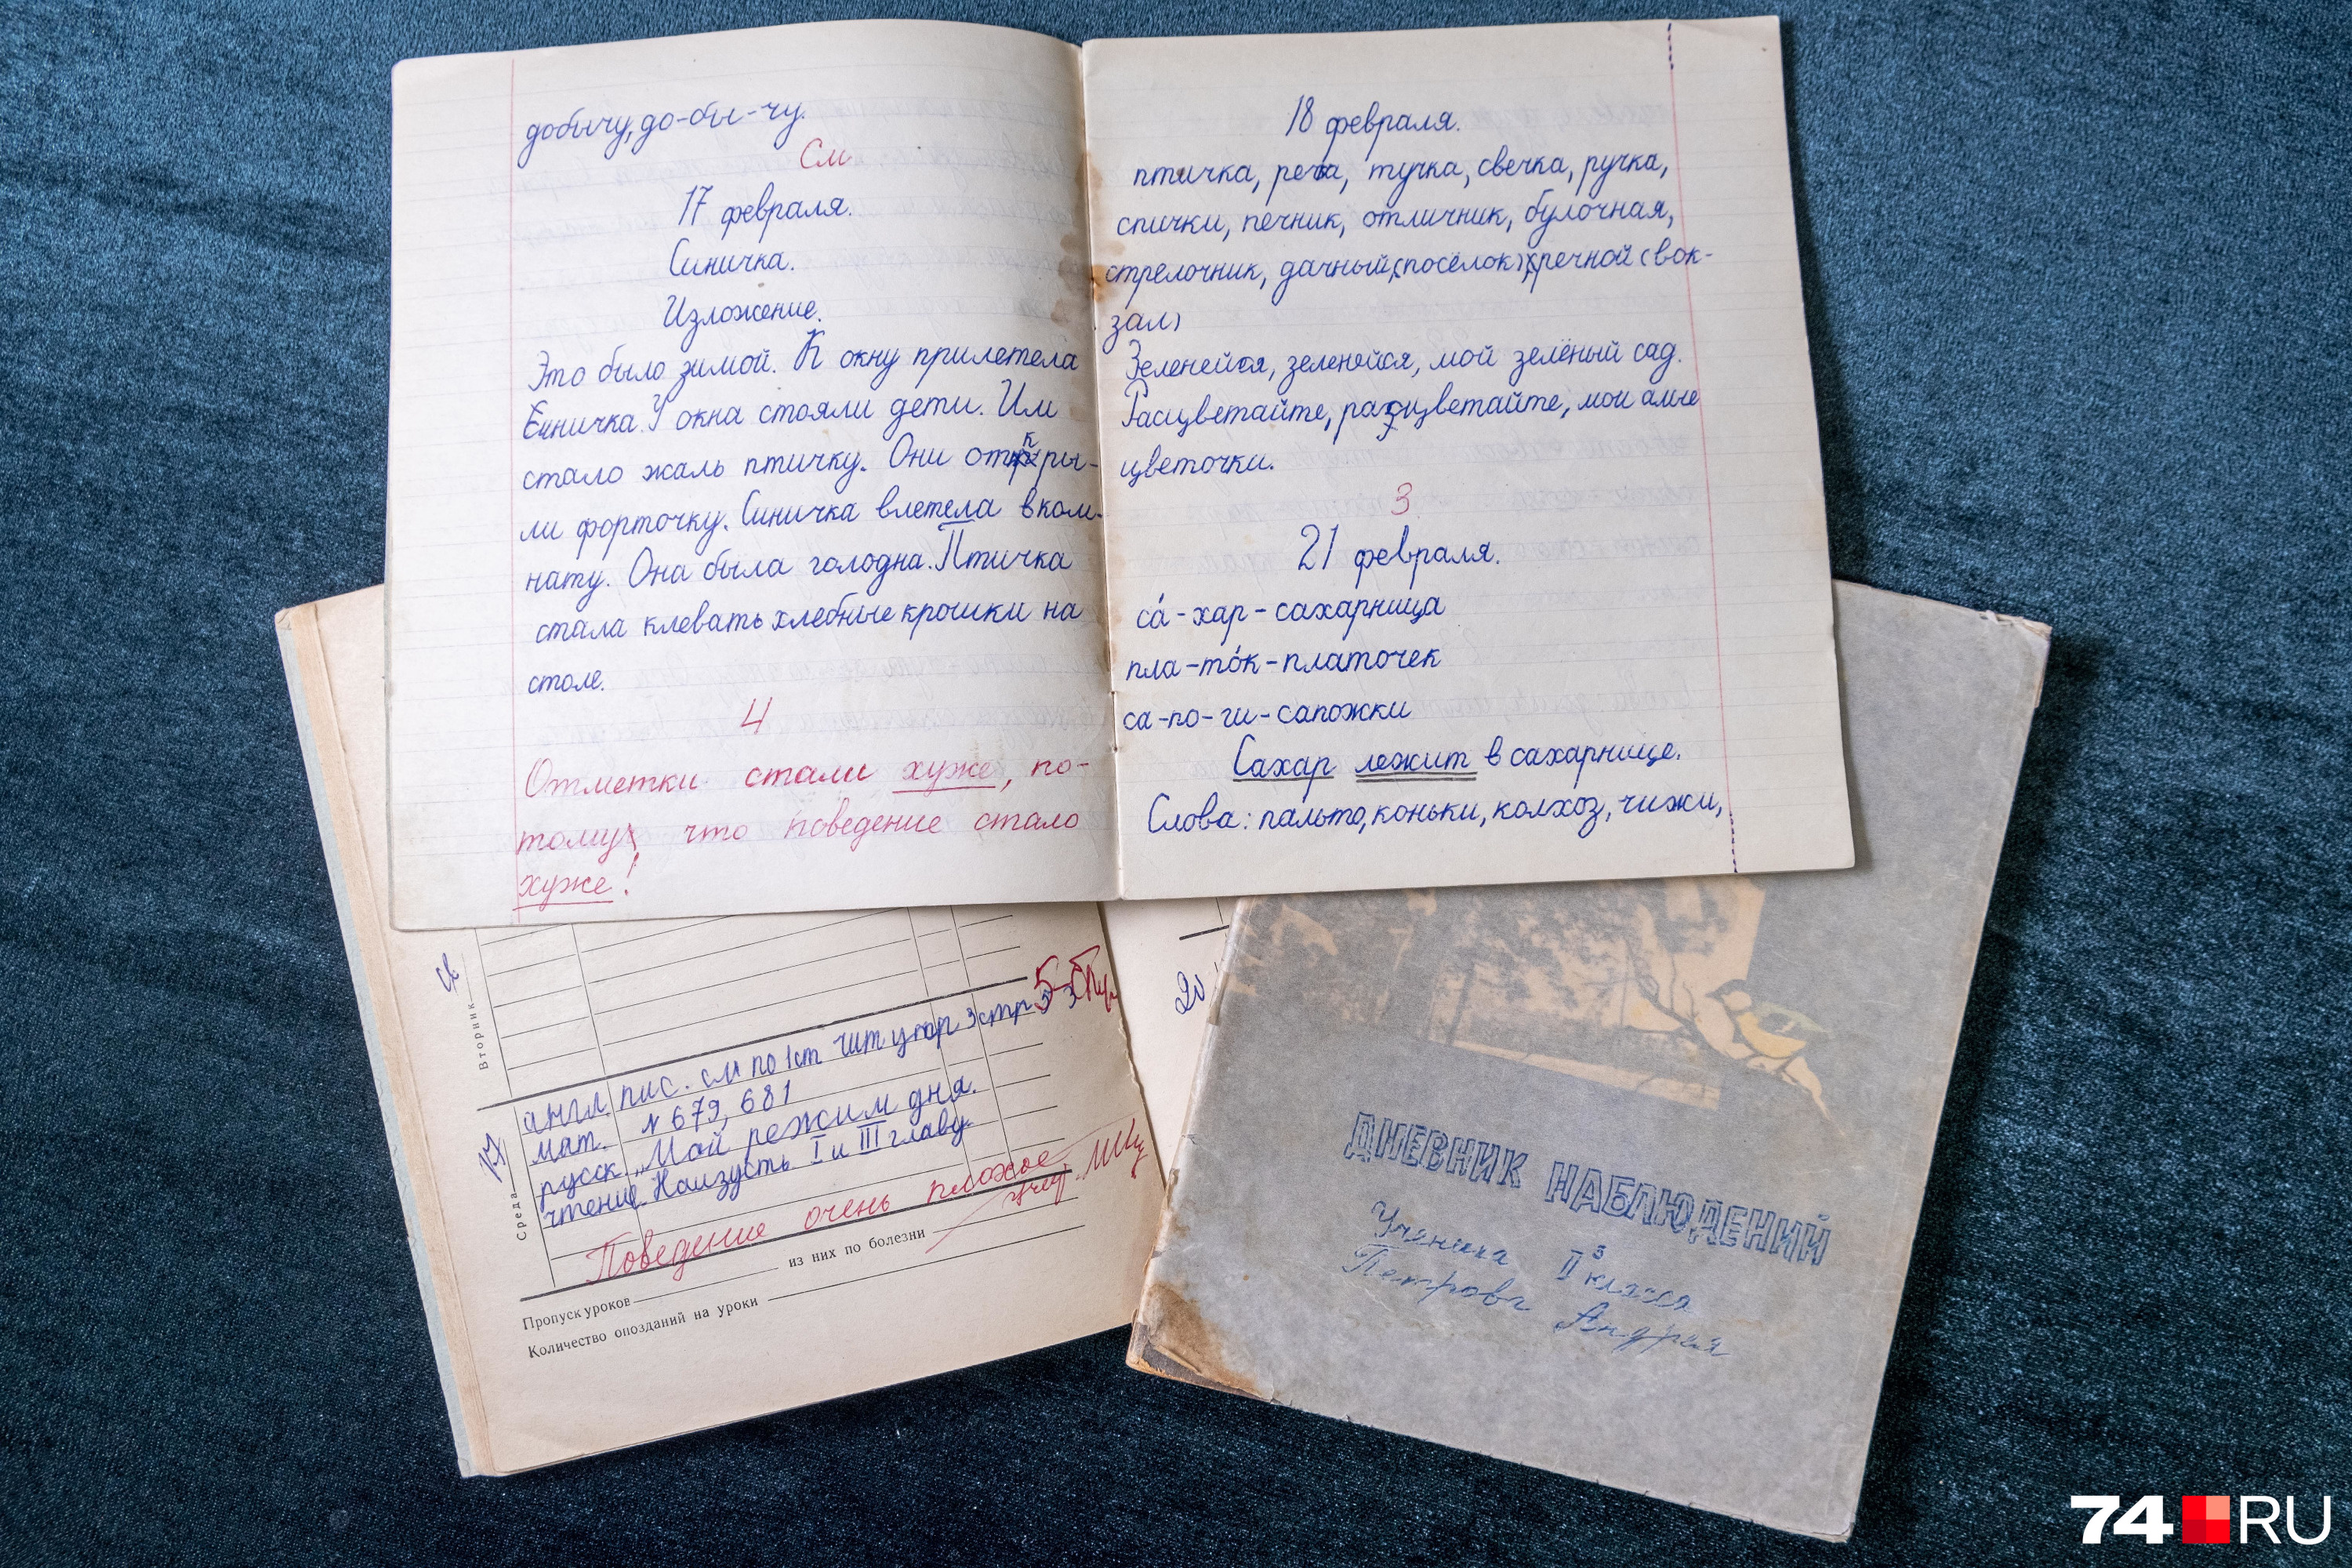 добычу, до-бы-чу.
См
17 февраля.
Синичка.
Изложение.
Это было зимой. К окну прилетела
Синичка. У окна стояли дети. Им
стало жаль птичку. Они откры-
ли форточку. Синичка влетела в ком-
нату. Она была голодна. Птичка
стала клевать хлебные крошки на
столе.
4
Отметки стали хуже, по-
тому, что поведение стало
хуже!
18 февраля.
птичка, речка, тучка, свечка, ручка,
спички, печник, отличник, булочная,
стрелочник, дачный (посёлок), речной (вок-
зал)
Зеленейся, зеленейся, мой зелёный сад.
Расцветайте, расцветайте, мои алые
цветочки.
3
21 февраля.
са́-хар - сахарница
пла-то́к - платочек
са-по-ги - сапожки
Сахар лежит в сахарнице.
Слова: пальто, коньки, колхоз, чижи,
Вторник
5
20
Среда
17
англ. пис. см по 1 ст чит упр 3 стр 53
мат. N 679, 681
русск. „Мой режим дня.
чтение. Наизусть I и III главу.
Поведение очень плохое
Пропуск уроков из них по болезни
Количество опозданий на уроки
ДНЕВНИК НАБЛЮДЕНИЙ
Ученика II з класса
Петрова Андрея
74 RU